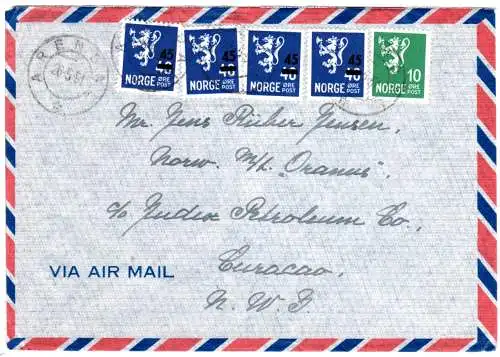 45 45 45 45
40 40 40 40 10
NORGE ØRE POST NORGE ØRE POST NORGE ØRE POST NORGE ØRE POST NORGE ØRE POST
Mr. Jens
Norw. M/t. "Oranus".
c/o Petroleum Co.,
Curacao.
N. W. I.
VIA AIR MAIL